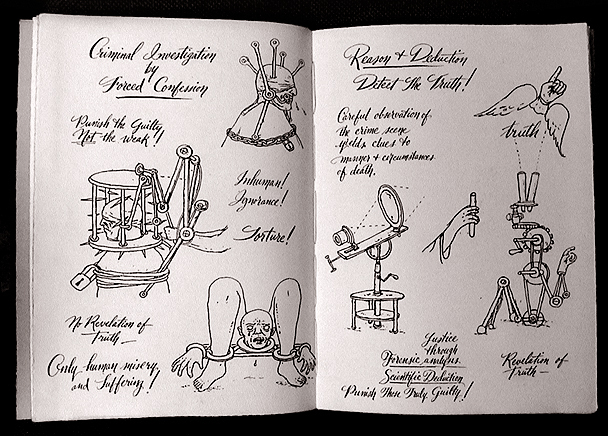 Criminal Investigation
by
Forced Confession
Punish the Guilty
Not the weak!
Inhuman!
Ignorance!
Torture!
No Revelation of
Truth —
Only human misery
and Suffering!
Reason & Deduction
Detect The Truth!
Careful observation of
the crime scene
yields clues to
manner & circumstances
of death.
truth!
Justice
through
Forensic analysis.
Scientific Deduction
Punish Those Truly Guilty!
Revelation of
Truth —